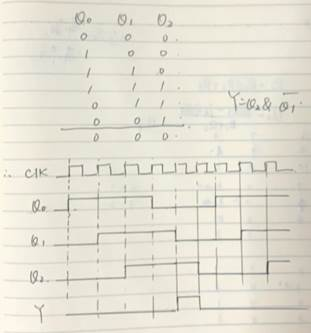 Q0 Q1 Q2
0 0 0
1 0 0
1 1 0
1 1 1
0 1 1
0 0 1
0 0 0
Y=Q2 & Q̅1
∴ CLK
Q0
Q1
Q2
Y